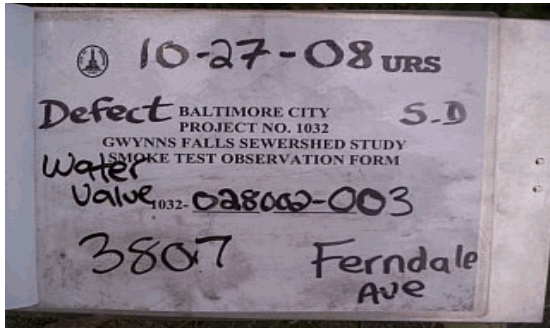 10-27-08 URS
Defect BALTIMORE CITY S.D
PROJECT NO. 1032
GWYNNS FALLS SEWERSHED STUDY
Water SMOKE TEST OBSERVATION FORM
Value 1032-028002-003
3807 Ferndale
Ave